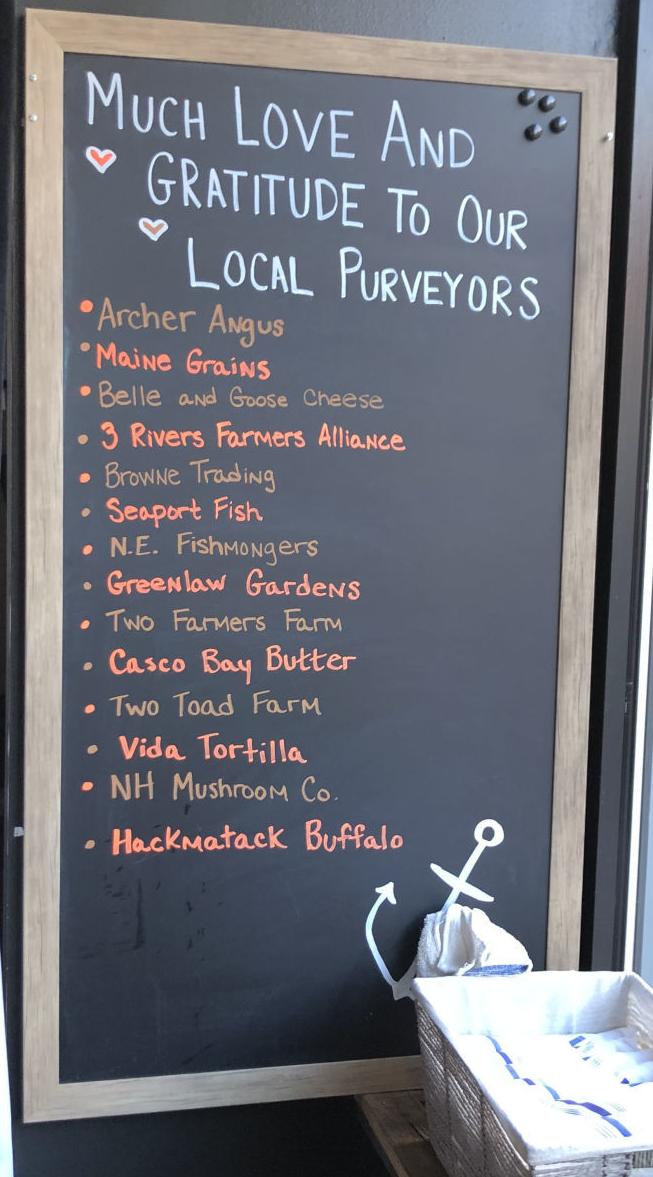 MUCH LOVE AND
GRATITUDE TO OUR
LOCAL PURVEYORS
• Archer Angus
• Maine Grains
• Belle and Goose Cheese
• 3 Rivers Farmers Alliance
• Browne Trading
• Seaport Fish
• N.E. Fishmongers
• Greenlaw Gardens
• Two Farmers Farm
• Casco Bay Butter
• Two Toad Farm
• Vida Tortilla
• NH Mushroom Co.
• Hackmatack Buffalo